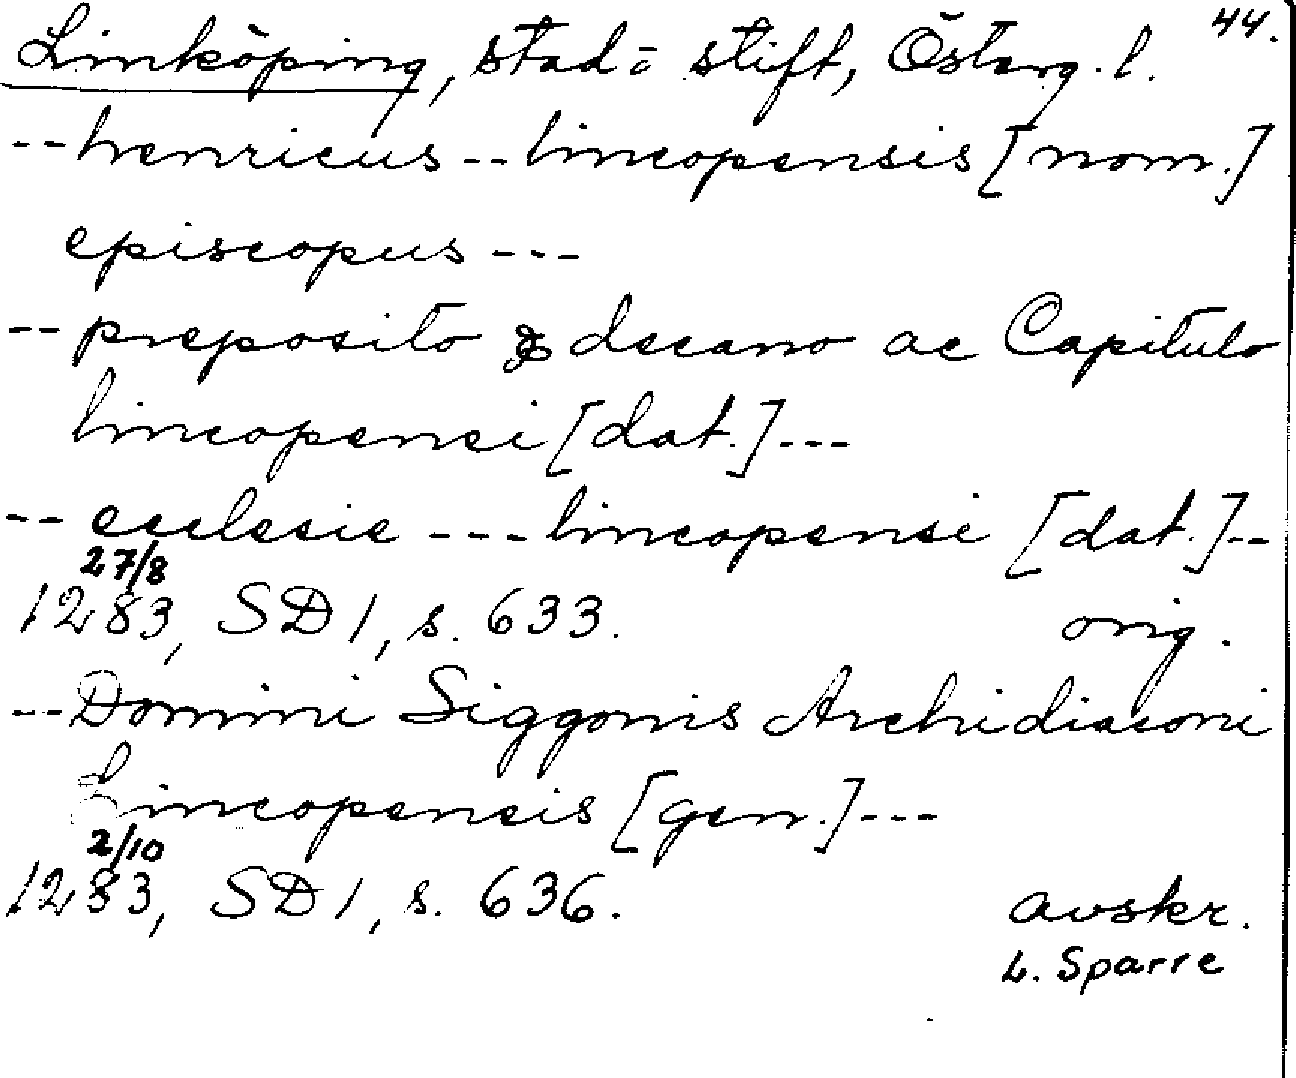 44.
Linköping, stad o stift, Österg. l.
-- henricus -- lincopensis [nom.]
episcopus ---
-- preposito & decano ac Capitulo
lincopensi [dat.] ---
-- ecclesie --- lincopensi [dat.] --
27/8
1283, SD 1, s. 633. orig.
-- Domini Siggonis Archidiaconi
Lincopensis [gen.] ---
2/10
1283, SD 1, s. 636. avskr.
L. Sparre